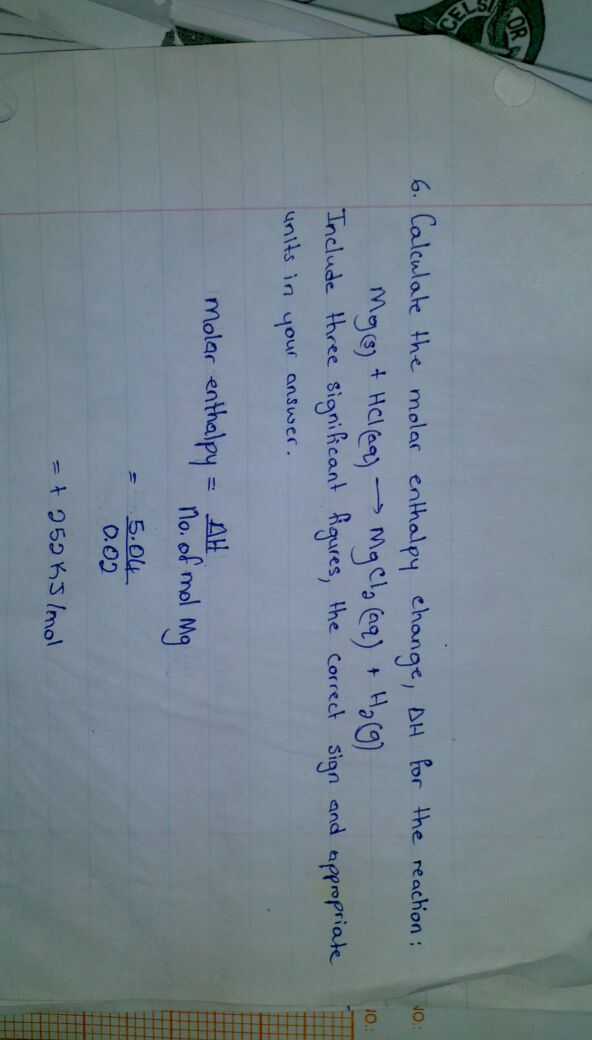 6. Calculate the molar enthalpy change, ΔH for the reaction:
Mg(s) + HCl(aq) → MgCl₂(aq) + H₂(g)
Include three significant figures, the correct sign and appropriate
units in your answer.
Molar enthalpy = ΔH
No. of mol Mg
= 5.04
0.02
= + 252 KJ/mol
CELS
OR